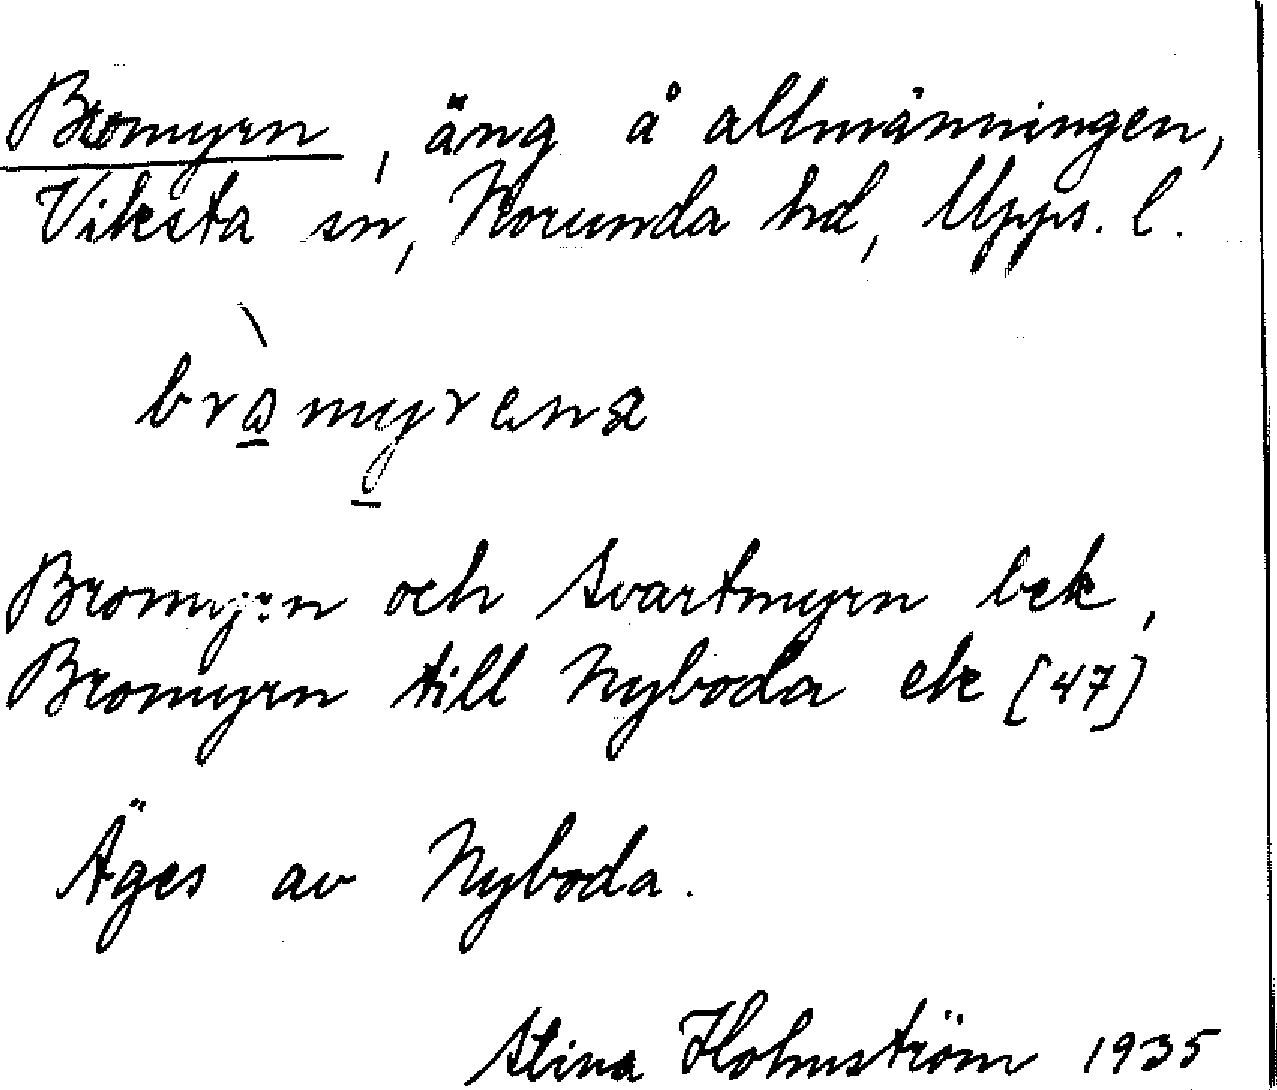 Bromyrn, äng å allmänningen,
Viksta sn, Norunda hd, Upps. l.
Bromyrn och Svartmyrn bek,
Bromyrn till Nyboda ek [47]
Äges av Nyboda.
Stina Holmström 1935